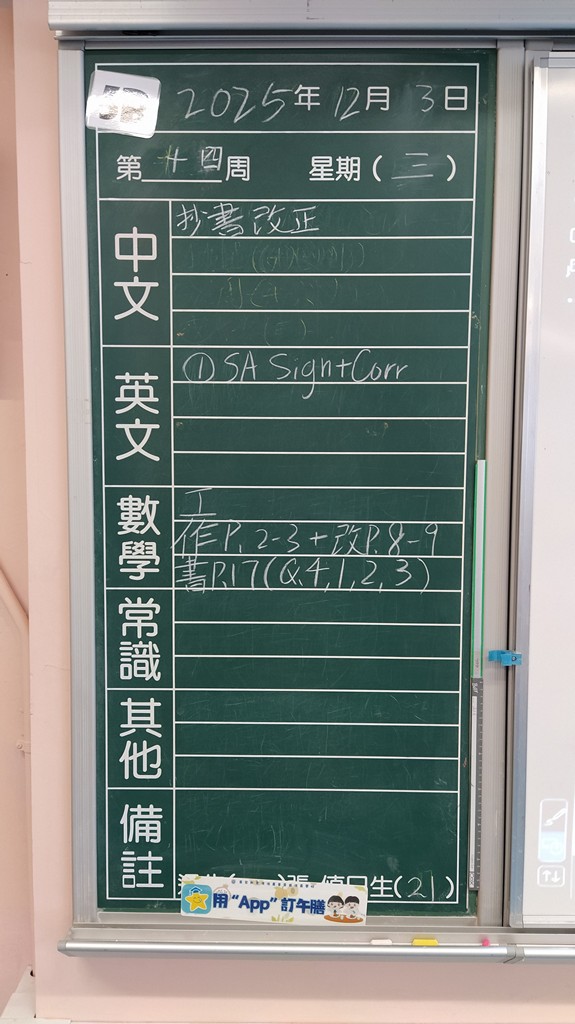 2025年 12月 3日
第 十四 周 星期 ( 三 )
中文
抄書改正
英文
① SA Sign+Corr
數學
工
作P. 2-3 + 改P. 8-9
書P.17 (Q.4, 1, 2, 3)
常識
其他
備註
張 值日生(21)
用“App”訂午膳